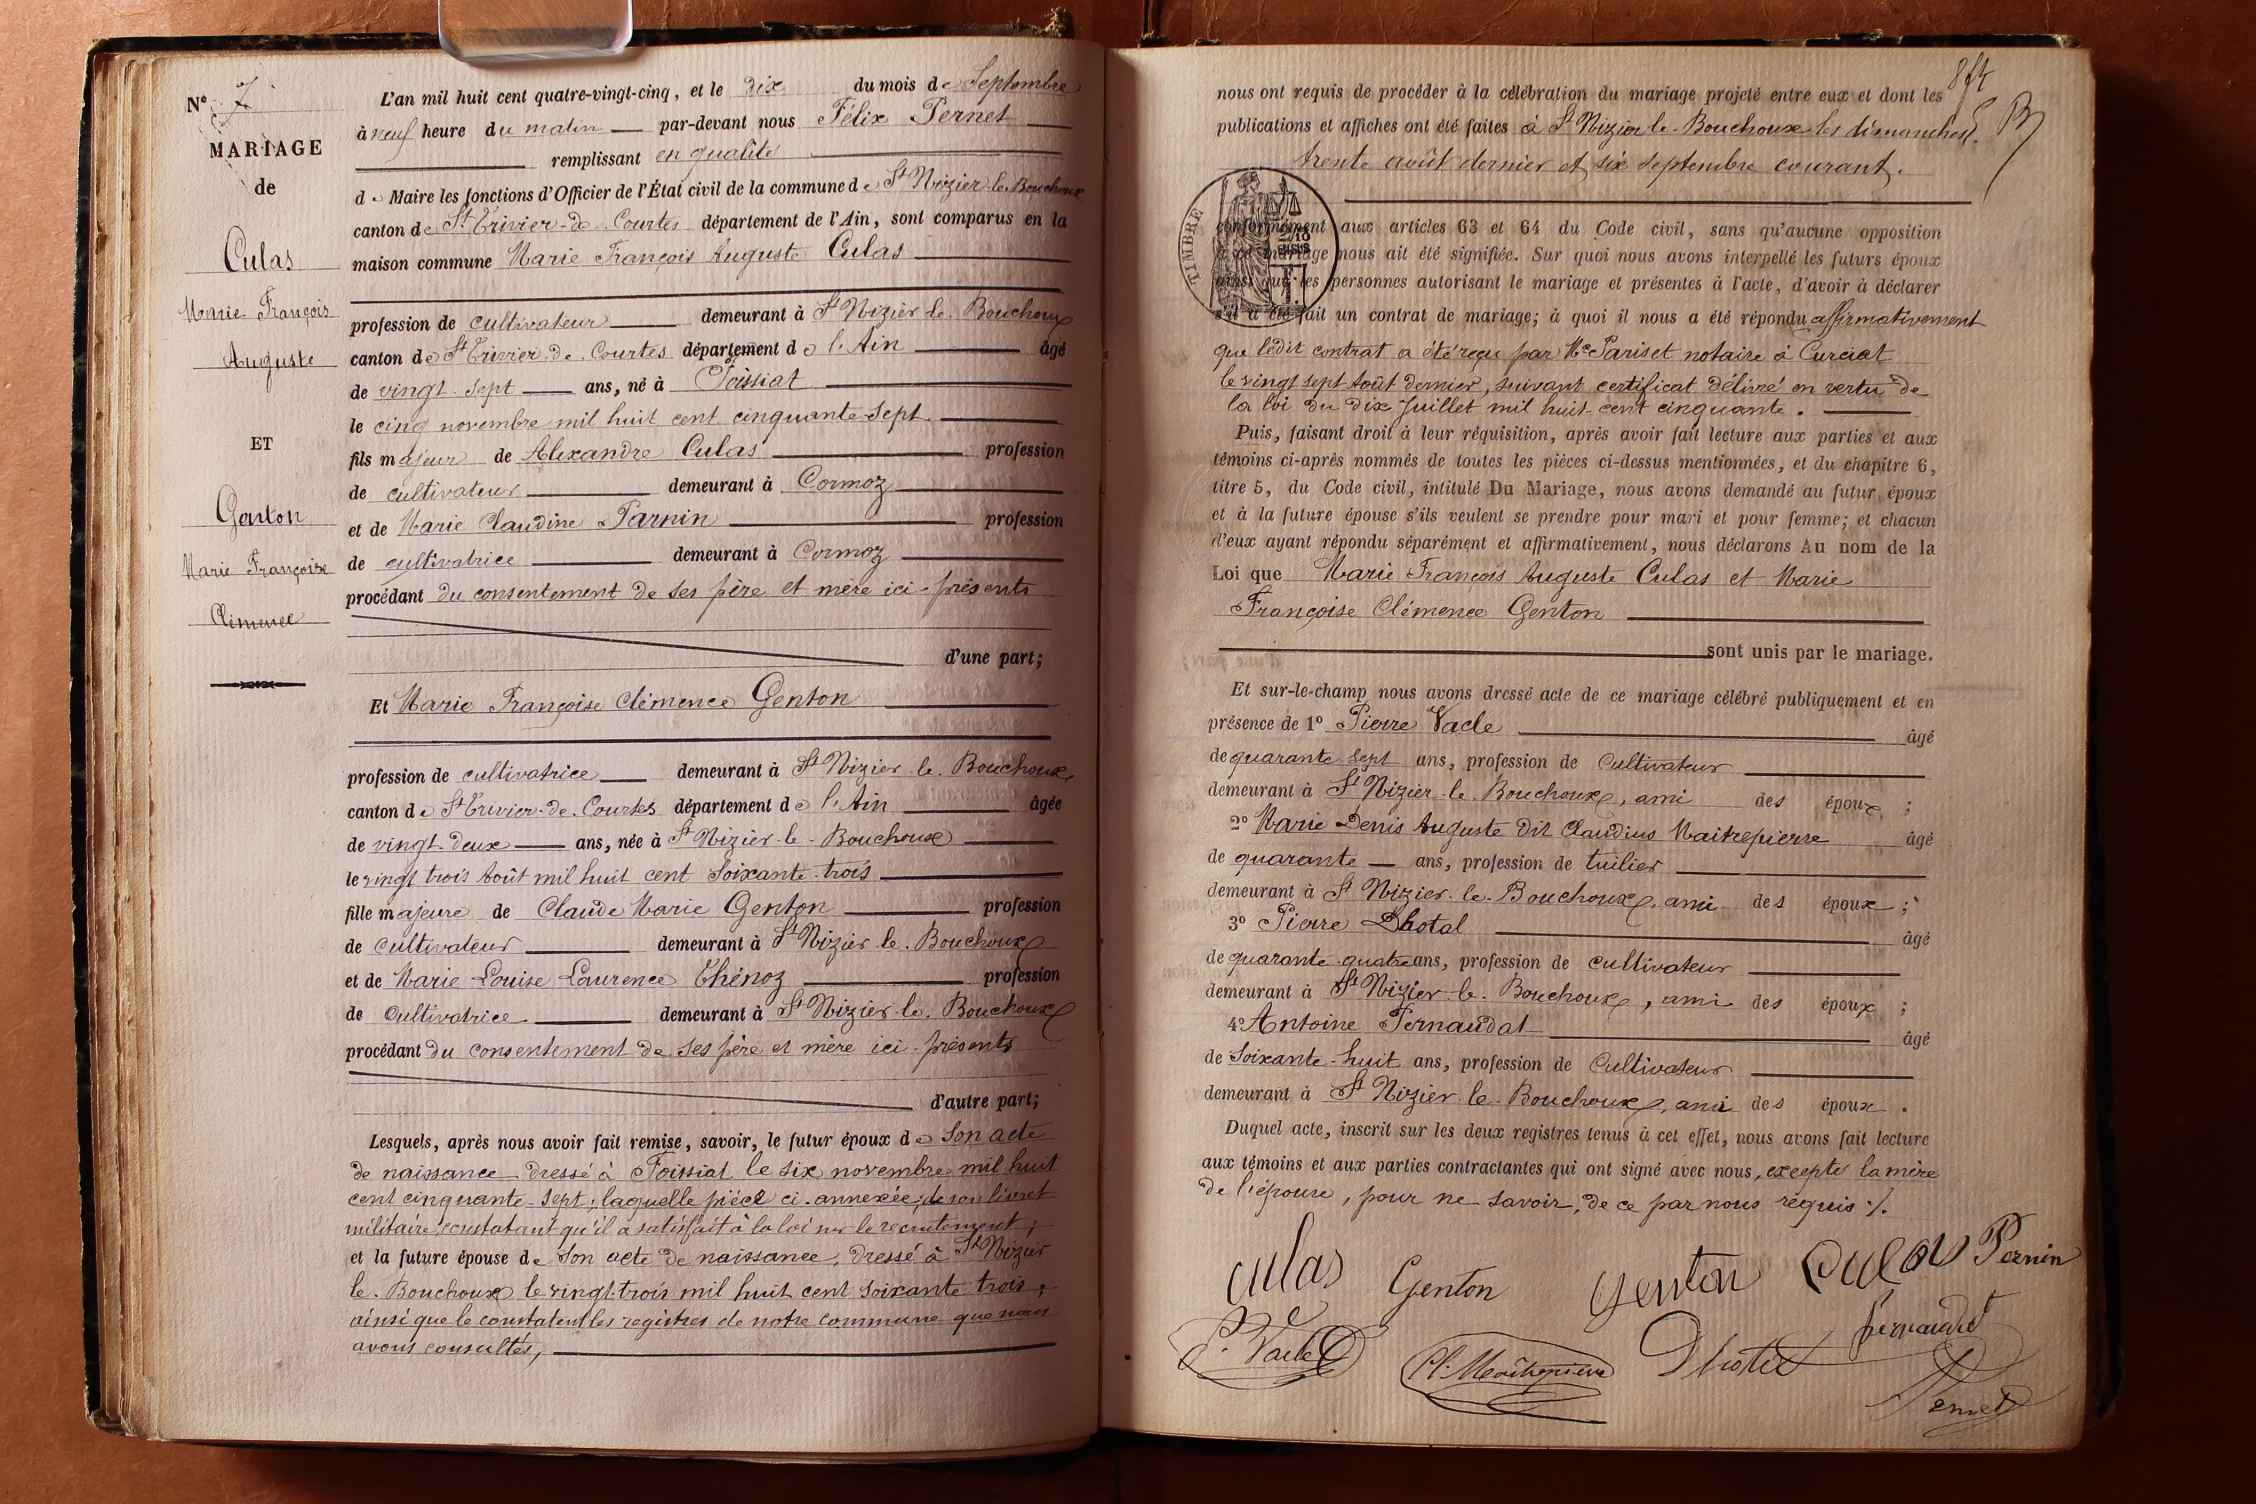 N° 7
MARIAGE
de
Culas
Marie François
Auguste
ET
Genton
Marie Françoise
Clémence
L'an mil huit cent quatre-vingt-cinq, et le dix du mois de Septembre
à neuf heure du matin par-devant nous Félix Pernet
remplissant en qualité
de Maire les fonctions d'Officier de l'État civil de la commune de St Nizier-le-Bouchoux
canton de St Trivier-de-Courtes département de l'Ain, sont comparus en la
maison commune Marie François Auguste Culas
profession de cultivateur demeurant à St Nizier-le-Bouchoux
canton de St Trivier-de-Courtes département de l'Ain âgé
de vingt-sept ans, né à Foissiat
le cinq novembre mil huit cent cinquante-sept
fils majeur de Alexandre Culas profession
de cultivateur demeurant à Cormoz
et de Marie Claudine Parnin profession
de cultivatrice demeurant à Cormoz
procédant du consentement de ses père et mère ici-présents
d'une part;
Et Marie Françoise Clémence Genton
profession de cultivatrice demeurant à St Nizier-le-Bouchoux
canton de St Trivier-de-Courtes département de l'Ain âgée
de vingt-deux ans, née à St Nizier-le-Bouchoux
le vingt trois août mil huit cent soixante-trois
fille majeure de Claude Marie Genton profession
de cultivateur demeurant à St Nizier-le-Bouchoux
et de Marie Louise Laurence Thénoz profession
de cultivatrice demeurant à St Nizier-le-Bouchoux
procédant du consentement de ses père et mère ici-présents
d'autre part;
Lesquels, après nous avoir fait remise, savoir, le futur époux de son acte
de naissance dressé à Foissiat le six novembre mil huit
cent cinquante-sept; laquelle pièce ci-annexée; de son livret
militaire constatant qu'il a satisfait à la loi sur le recrutement;
et la future épouse de son acte de naissance, dressé à St Nizier
le-Bouchoux le vingt-trois mil huit cent soixante trois;
ainsi que le constatent les registres de notre commune que nous
avons consultés,
8
nous ont requis de procéder à la célébration du mariage projeté entre eux et dont les
publications et affiches ont été faites à St Nizier-le-Bouchoux les dimanches
trente août dernier et six septembre courant.
TIMBRE
conformément aux articles 63 et 64 du Code civil, sans qu'aucune opposition
à ce mariage nous ait été signifiée. Sur quoi nous avons interpellé les futurs époux
ainsi que les personnes autorisant le mariage et présentes à l'acte, d'avoir à déclarer
s'il a été fait un contrat de mariage; à quoi il nous a été répondu affirmativement
que ledit contrat a été reçu par Me Pariset notaire à Curciat
le vingt sept août dernier, suivant certificat délivré en vertu de
la loi du dix juillet mil huit-cent cinquante.
Puis, faisant droit à leur réquisition, après avoir fait lecture aux parties et aux
témoins ci-après nommés de toutes les pièces ci-dessus mentionnées, et du chapitre 6,
titre 5, du Code civil, intitulé Du Mariage, nous avons demandé au futur époux
et à la future épouse s'ils veulent se prendre pour mari et pour femme; et chacun
d'eux ayant répondu séparément et affirmativement, nous déclarons Au nom de la
Loi que Marie François Auguste Culas et Marie
Françoise Clémence Genton
sont unis par le mariage.
Et sur-le-champ nous avons dressé acte de ce mariage célébré publiquement et en
présence de 1° Pierre Vacle âgé
de quarante sept ans, profession de cultivateur
demeurant à St Nizier-le-Bouchoux, ami des époux;
2° Marie Denis Auguste dit Claudius Maitrepierre âgé
de quarante ans, profession de tuilier
demeurant à St Nizier-le-Bouchoux, ami des époux;
3° Pierre Dhotal âgé
de quarante-quatre ans, profession de cultivateur
demeurant à St Nizier-le-Bouchoux, ami des époux;
4° Antoine Pernaudat âgé
de soixante-huit ans, profession de cultivateur
demeurant à St Nizier-le-Bouchoux, ami des époux.
Duquel acte, inscrit sur les deux registres tenus à cet effet, nous avons fait lecture
aux témoins et aux parties contractantes qui ont signé avec nous, excepté la mère
de l'épouse, pour ne savoir, de ce par nous requis ./.
Culas Genton Genton Culas Pernin
P. Vacle Cl. Maitrepierre Dhotel Pernaudat
Pernet